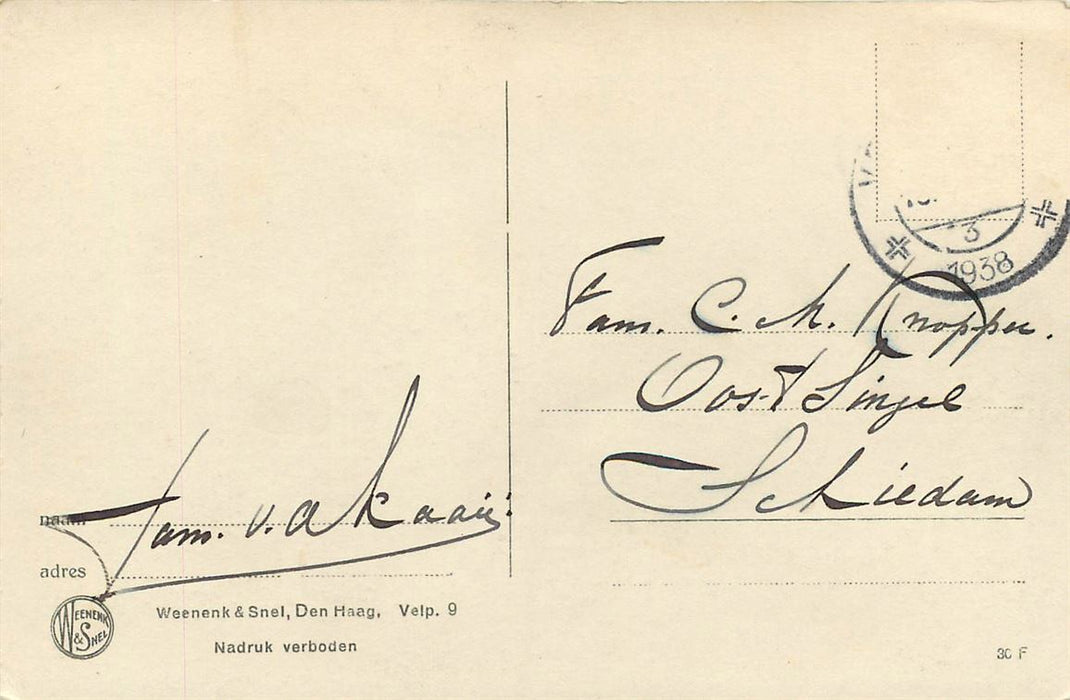 3
1938
Fam. C. M. Knopper.
Oost Singel
Schiedam
naam
Fam. v. d. Kaaij.
adres
WEENENK
& SNEL
Weenenk & Snel, Den Haag, Velp. 9
Nadruk verboden
30 F